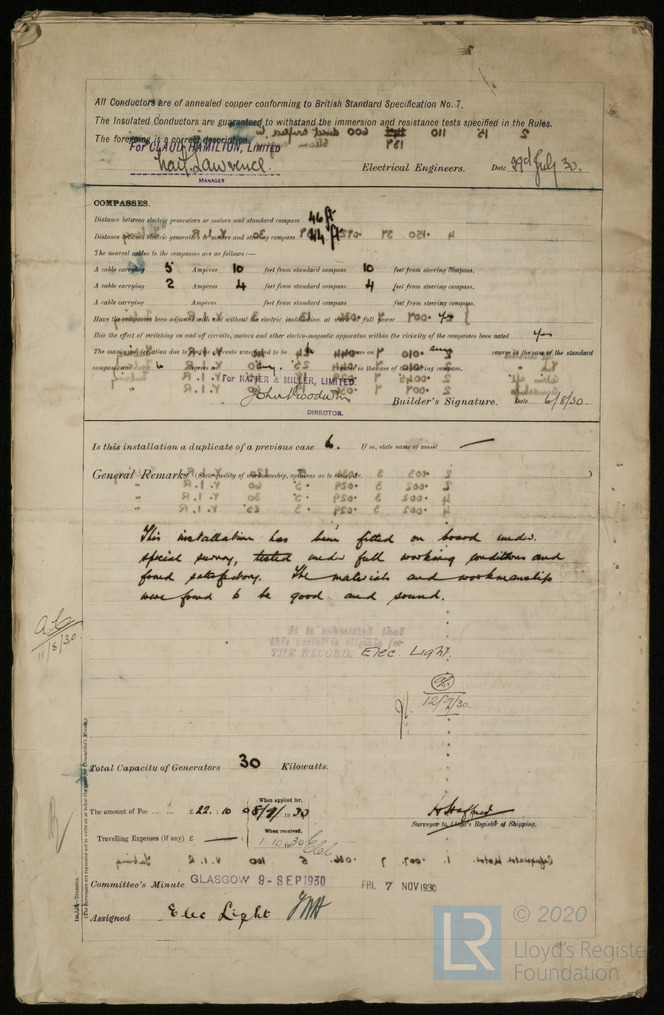 All Conductors are of annealed copper conforming to British Standard Specification No. 7.
The Insulated Conductors are guaranteed to withstand the immersion and resistance tests specified in the Rules.
The foregoing is a correct description.
For CLAUD HAMILTON, LIMITED
Lawrence
MANAGER
Electrical Engineers. Date 29d July 30.
COMPASSES.
Distance between electric generators or motors and standard compass 46 ft
Distance between electric generators or motors and steering compass 44 ft
The nearest cables to the compasses are as follows:—
A cable carrying 5 Ampères 10 feet from standard compass 10 feet from steering compass.
A cable carrying 2 Ampères 4 feet from standard compass 4 feet from steering compass.
A cable carrying Ampères feet from standard compass feet from steering compass.
Have the compasses been adjusted with and without the electric installation at work at full power yes
Has the effect of switching on and off circuits, motors and other electro-magnetic apparatus within the vicinity of the compasses been noted yes
The maximum deviation due to electric currents was found to be degrees on any course in the case of the standard
compass, and degrees on any course in the case of the steering compass.
For NAPIER & MILLER, LIMITED.
John Woodwin
DIRECTOR.
Builder's Signature. Date 6/8/30.
Is this installation a duplicate of a previous case If so, state name of vessel —
General Remarks
This installation has been fitted on board under
special survey, tested under full working conditions and
found satisfactory. The materials and workmanship
were found to be good and sound.
11/8/30.
It is submitted that
this vessel is eligible for
THE RECORD. Elec. Light.
12/9/30.
Total Capacity of Generators 30 Kilowatts.
The amount of Fee ... £ 22 : 10 : 0 When applied for, 8/9/1930
Travelling Expenses (if any) £ — When received, 1.10.1930
Surveyor to Lloyd's Register of Shipping.
Committee's Minute GLASGOW 9 - SEP 1930 FRI. 7 NOV 1930
Assigned Elec Light
© 2020
LR
Lloyd's Register
Foundation